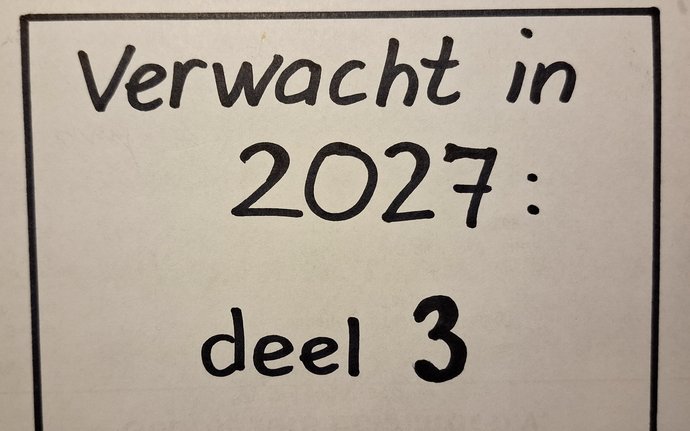 Verwacht in
2027:
deel 3